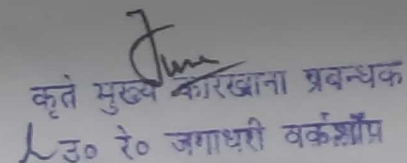 कृते मुख्य कारखाना प्रबन्धक
उ० रे० जगाधरी वर्कशॉप